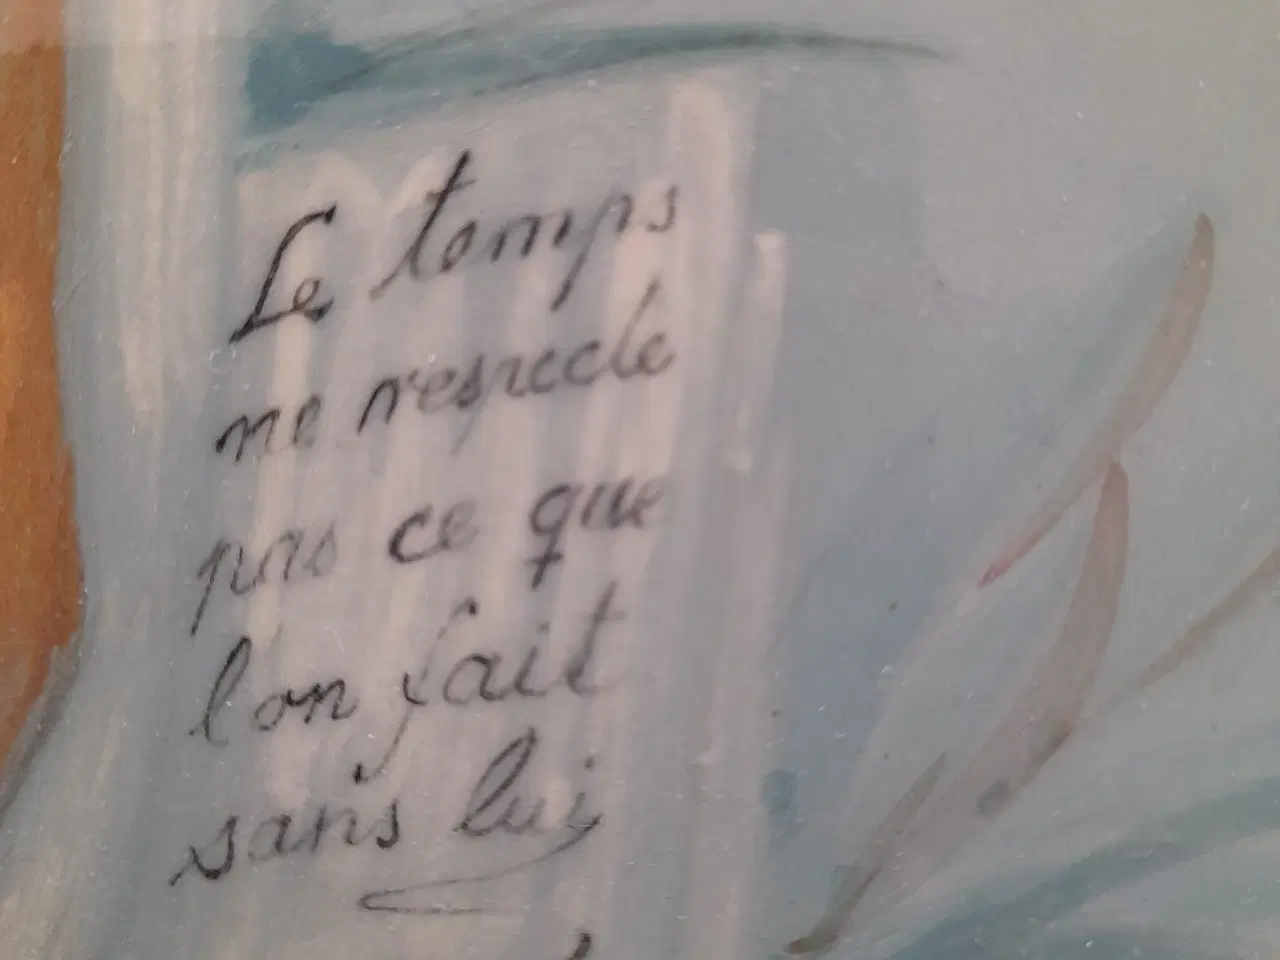 Le temps
ne respecte
pas ce que
l'on fait
sans lui